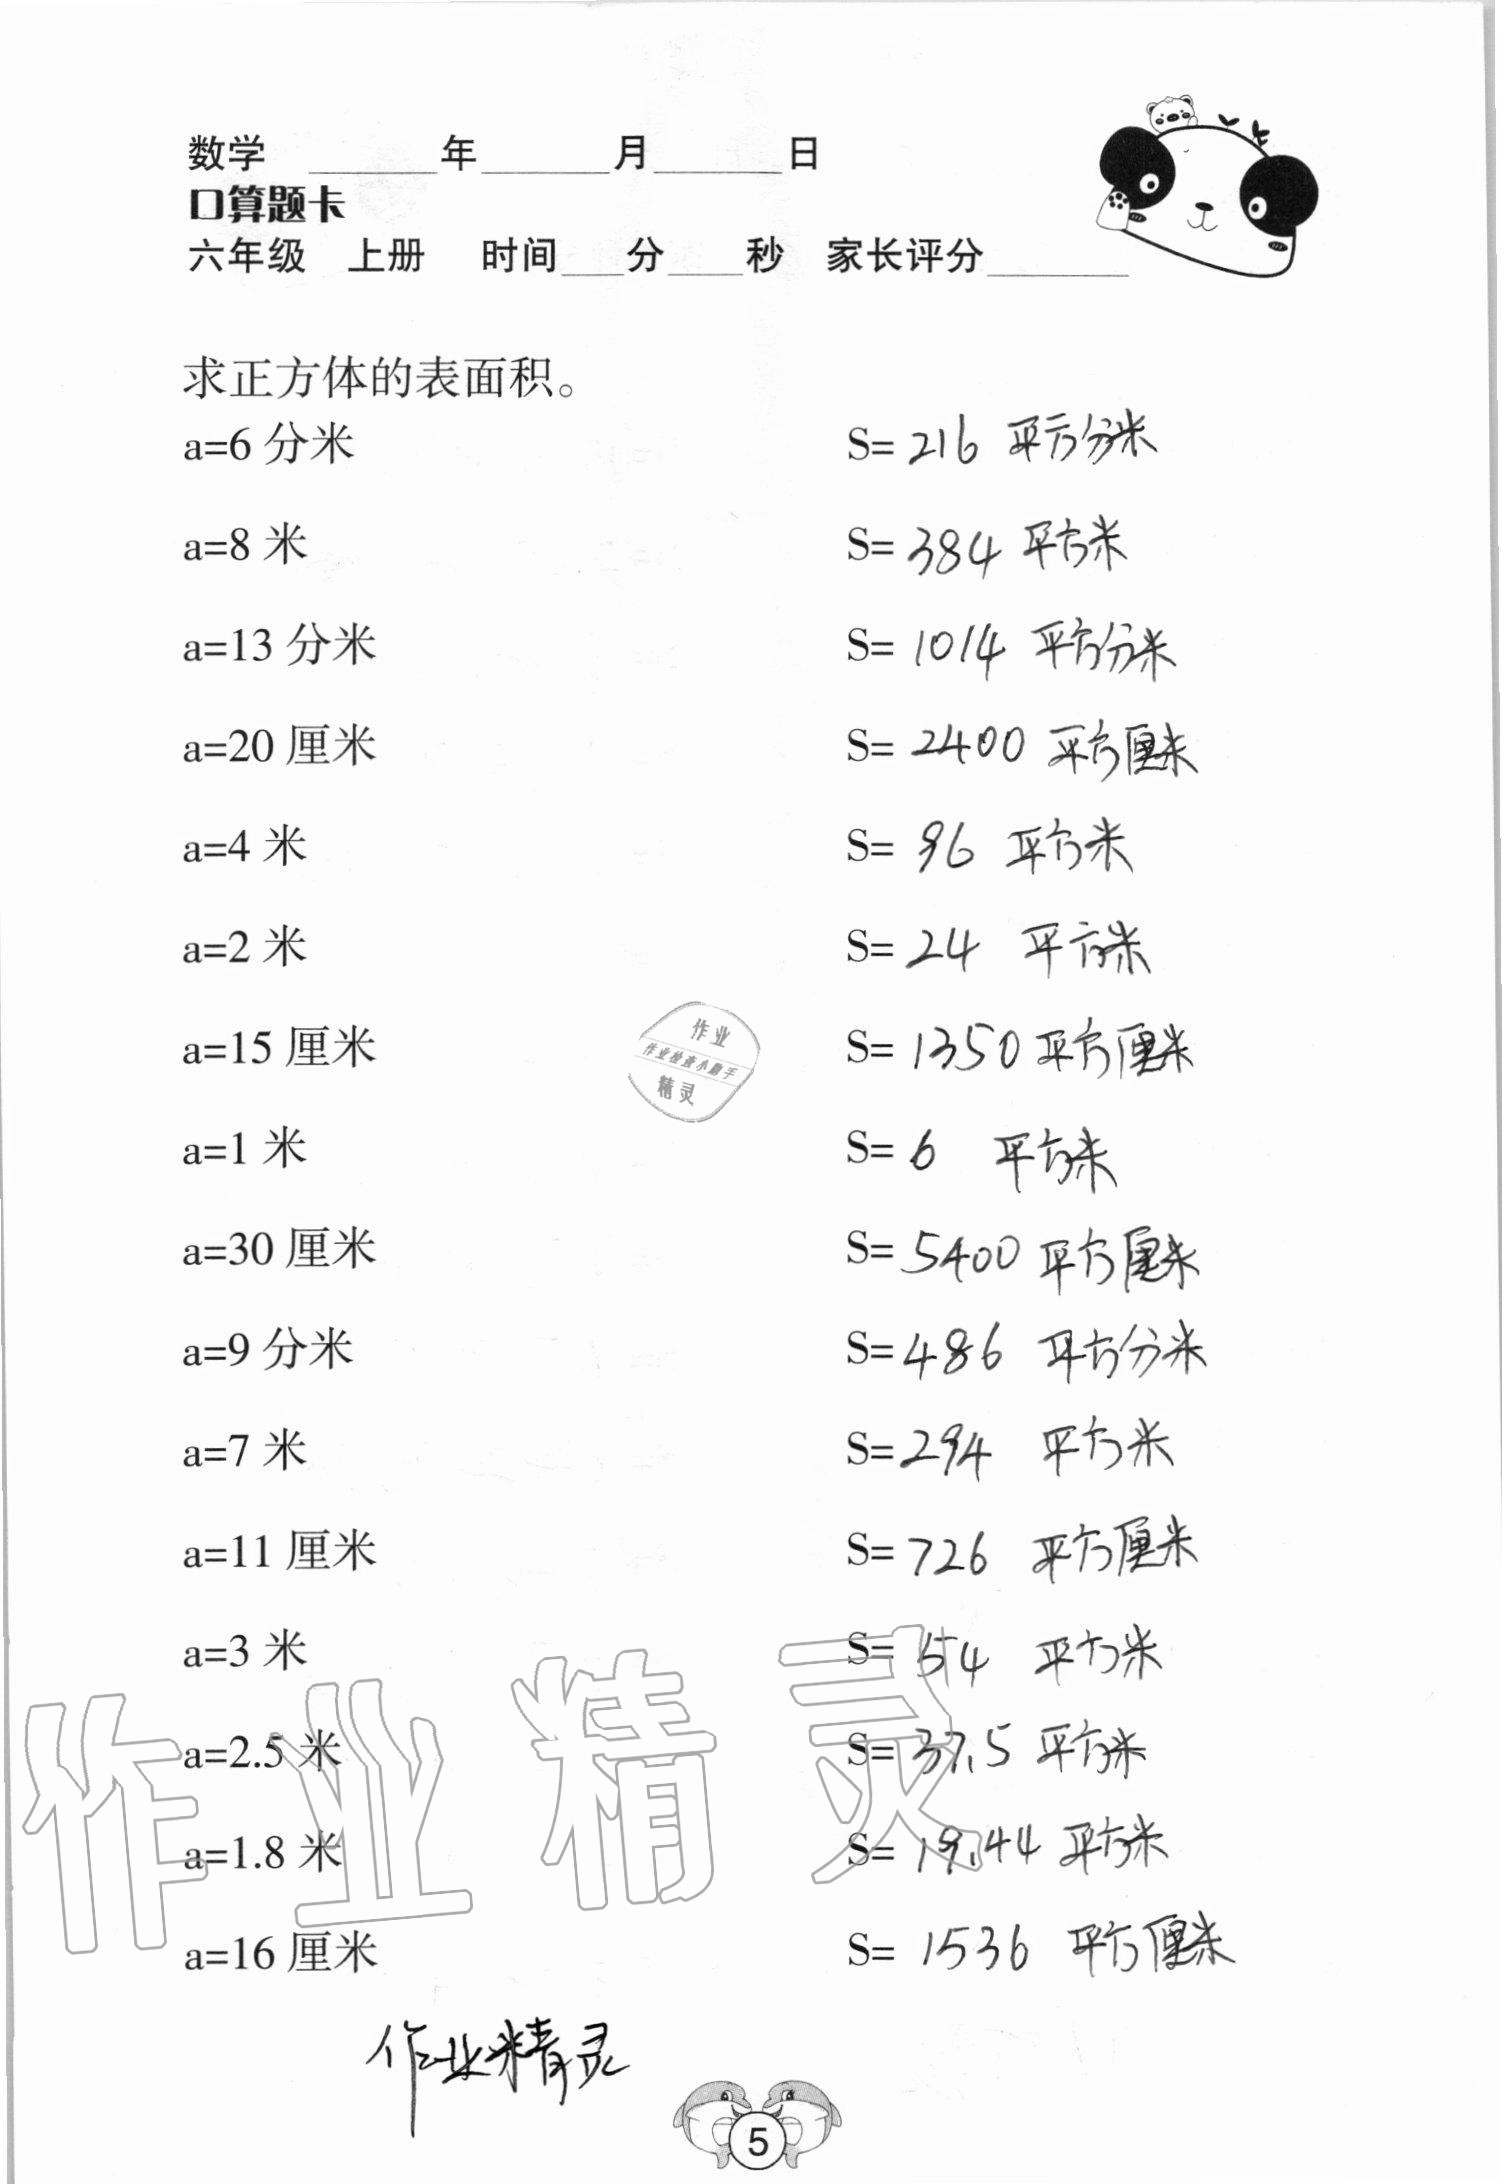 数学 ______年______月______日
口算题卡
六年级 上册 时间___分___秒 家长评分______
求正方体的表面积。
a=6 分米 S= 216 平方分米
a=8 米 S= 384 平方米
a=13 分米 S= 1014 平方分米
a=20 厘米 S= 2400 平方厘米
a=4 米 S= 96 平方米
a=2 米 S= 24 平方米
a=15 厘米 S= 1350 平方厘米
作业
作业检查小助手
精灵
a=1 米 S= 6 平方米
a=30 厘米 S= 5400 平方厘米
a=9 分米 S= 486 平方分米
a=7 米 S= 294 平方米
a=11 厘米 S= 726 平方厘米
a=3 米 S= 54 平方米
作业精灵
a=2.5 米 S= 37.5 平方米
a=1.8 米 S= 19.44 平方米
a=16 厘米 S= 1536 平方厘米
作业精灵
5